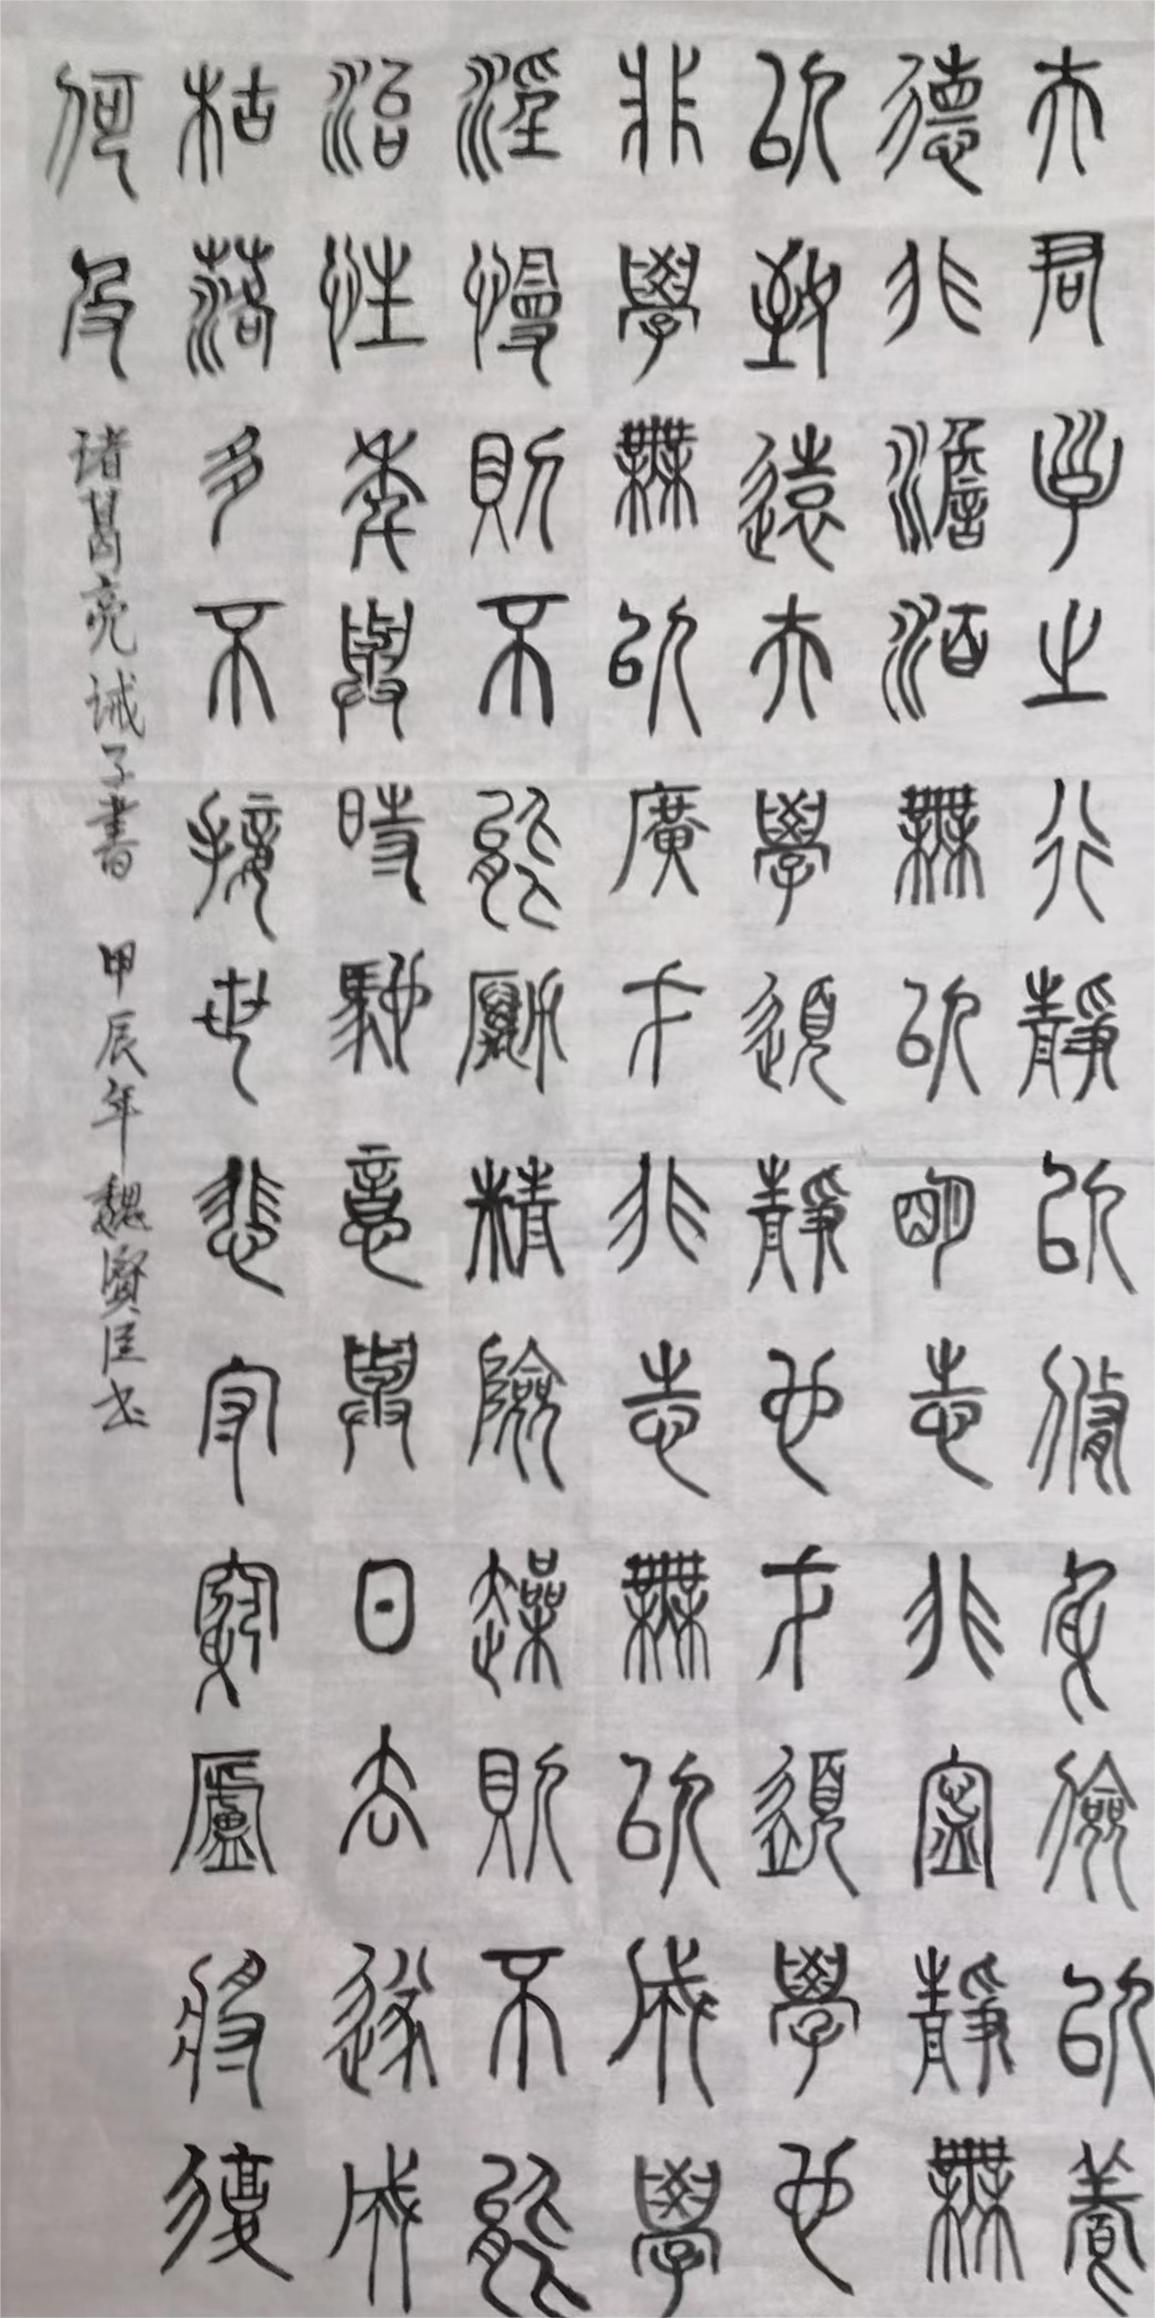 夫君子之行靜以修身儉以養
德非澹泊無以明志非寧靜無
以致遠夫學須靜也才須學也
非學無以廣才非志無以成學
淫慢則不能勵精險躁則不能
治性年與時馳意與日去遂成
枯落多不接世悲守窮廬將復
何及 诸葛亮诫子書 甲辰年魏賢臣书